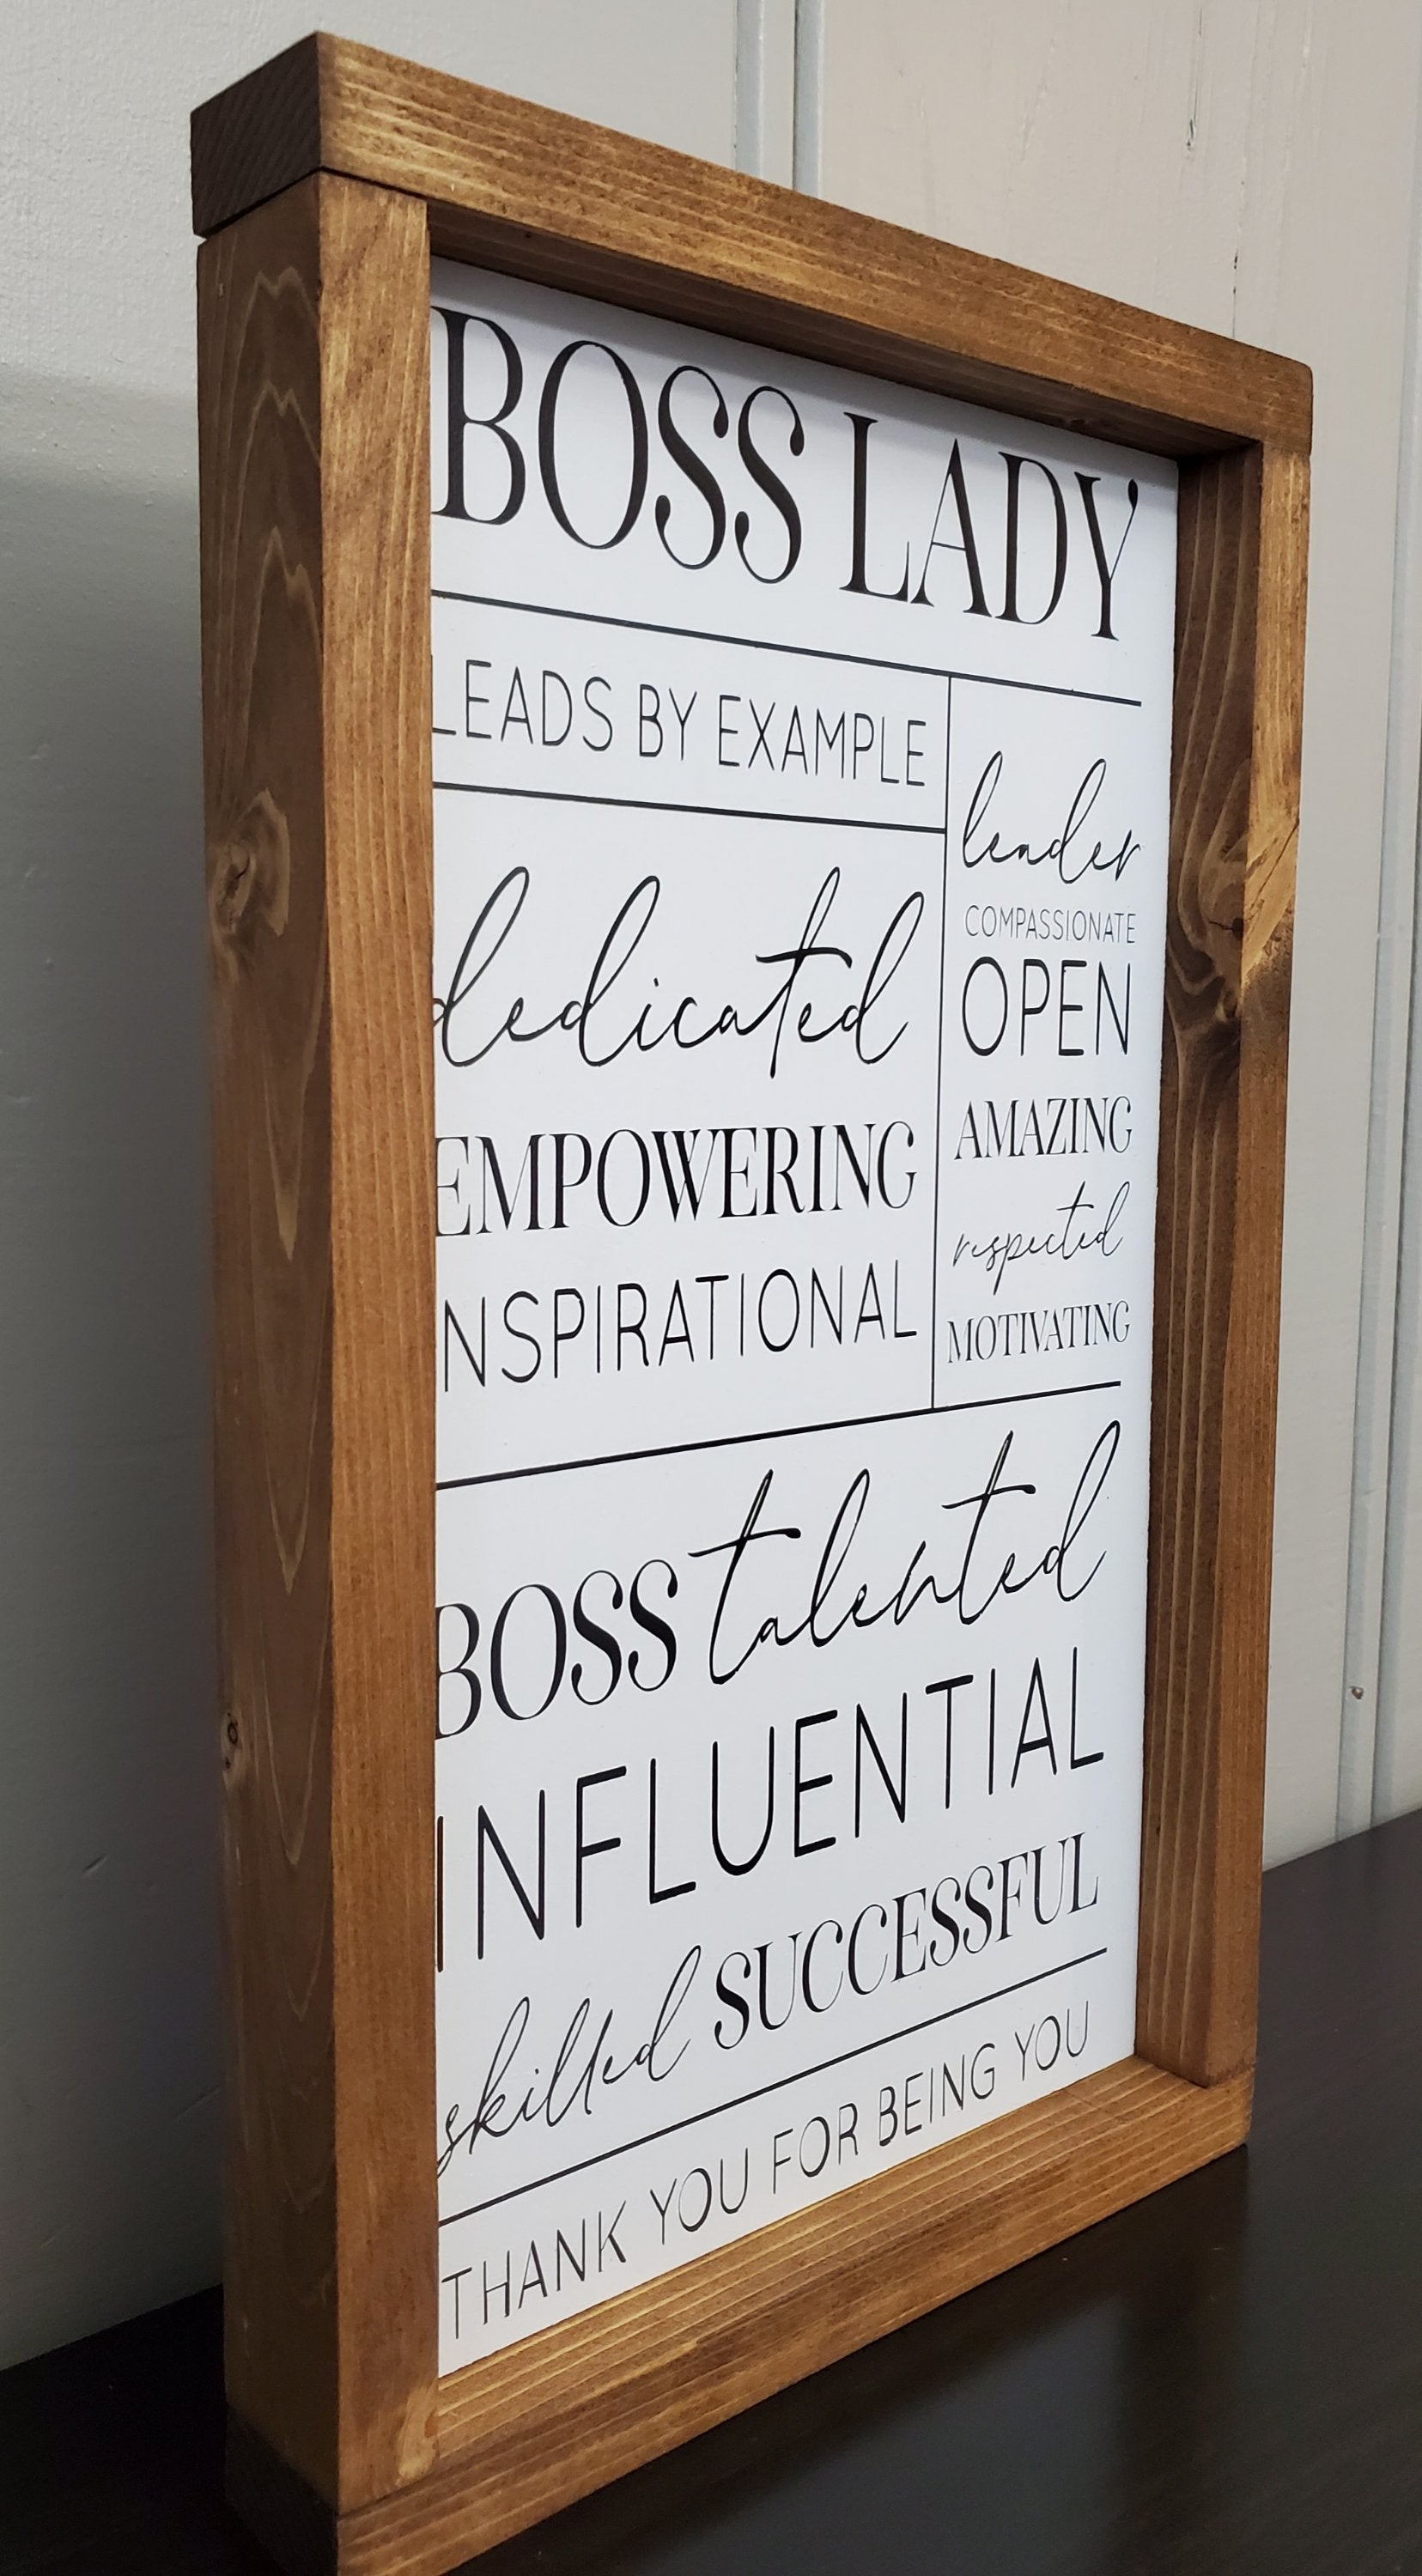 BOSS LADY
LEADS BY EXAMPLE
dedicated
EMPOWERING
NSPIRATIONAL
leader
COMPASSIONATE
OPEN
AMAZING
respected
MOTIVATING
BOSS talented
INFLUENTIAL
skilled SUCCESSFUL
THANK YOU FOR BEING YOU